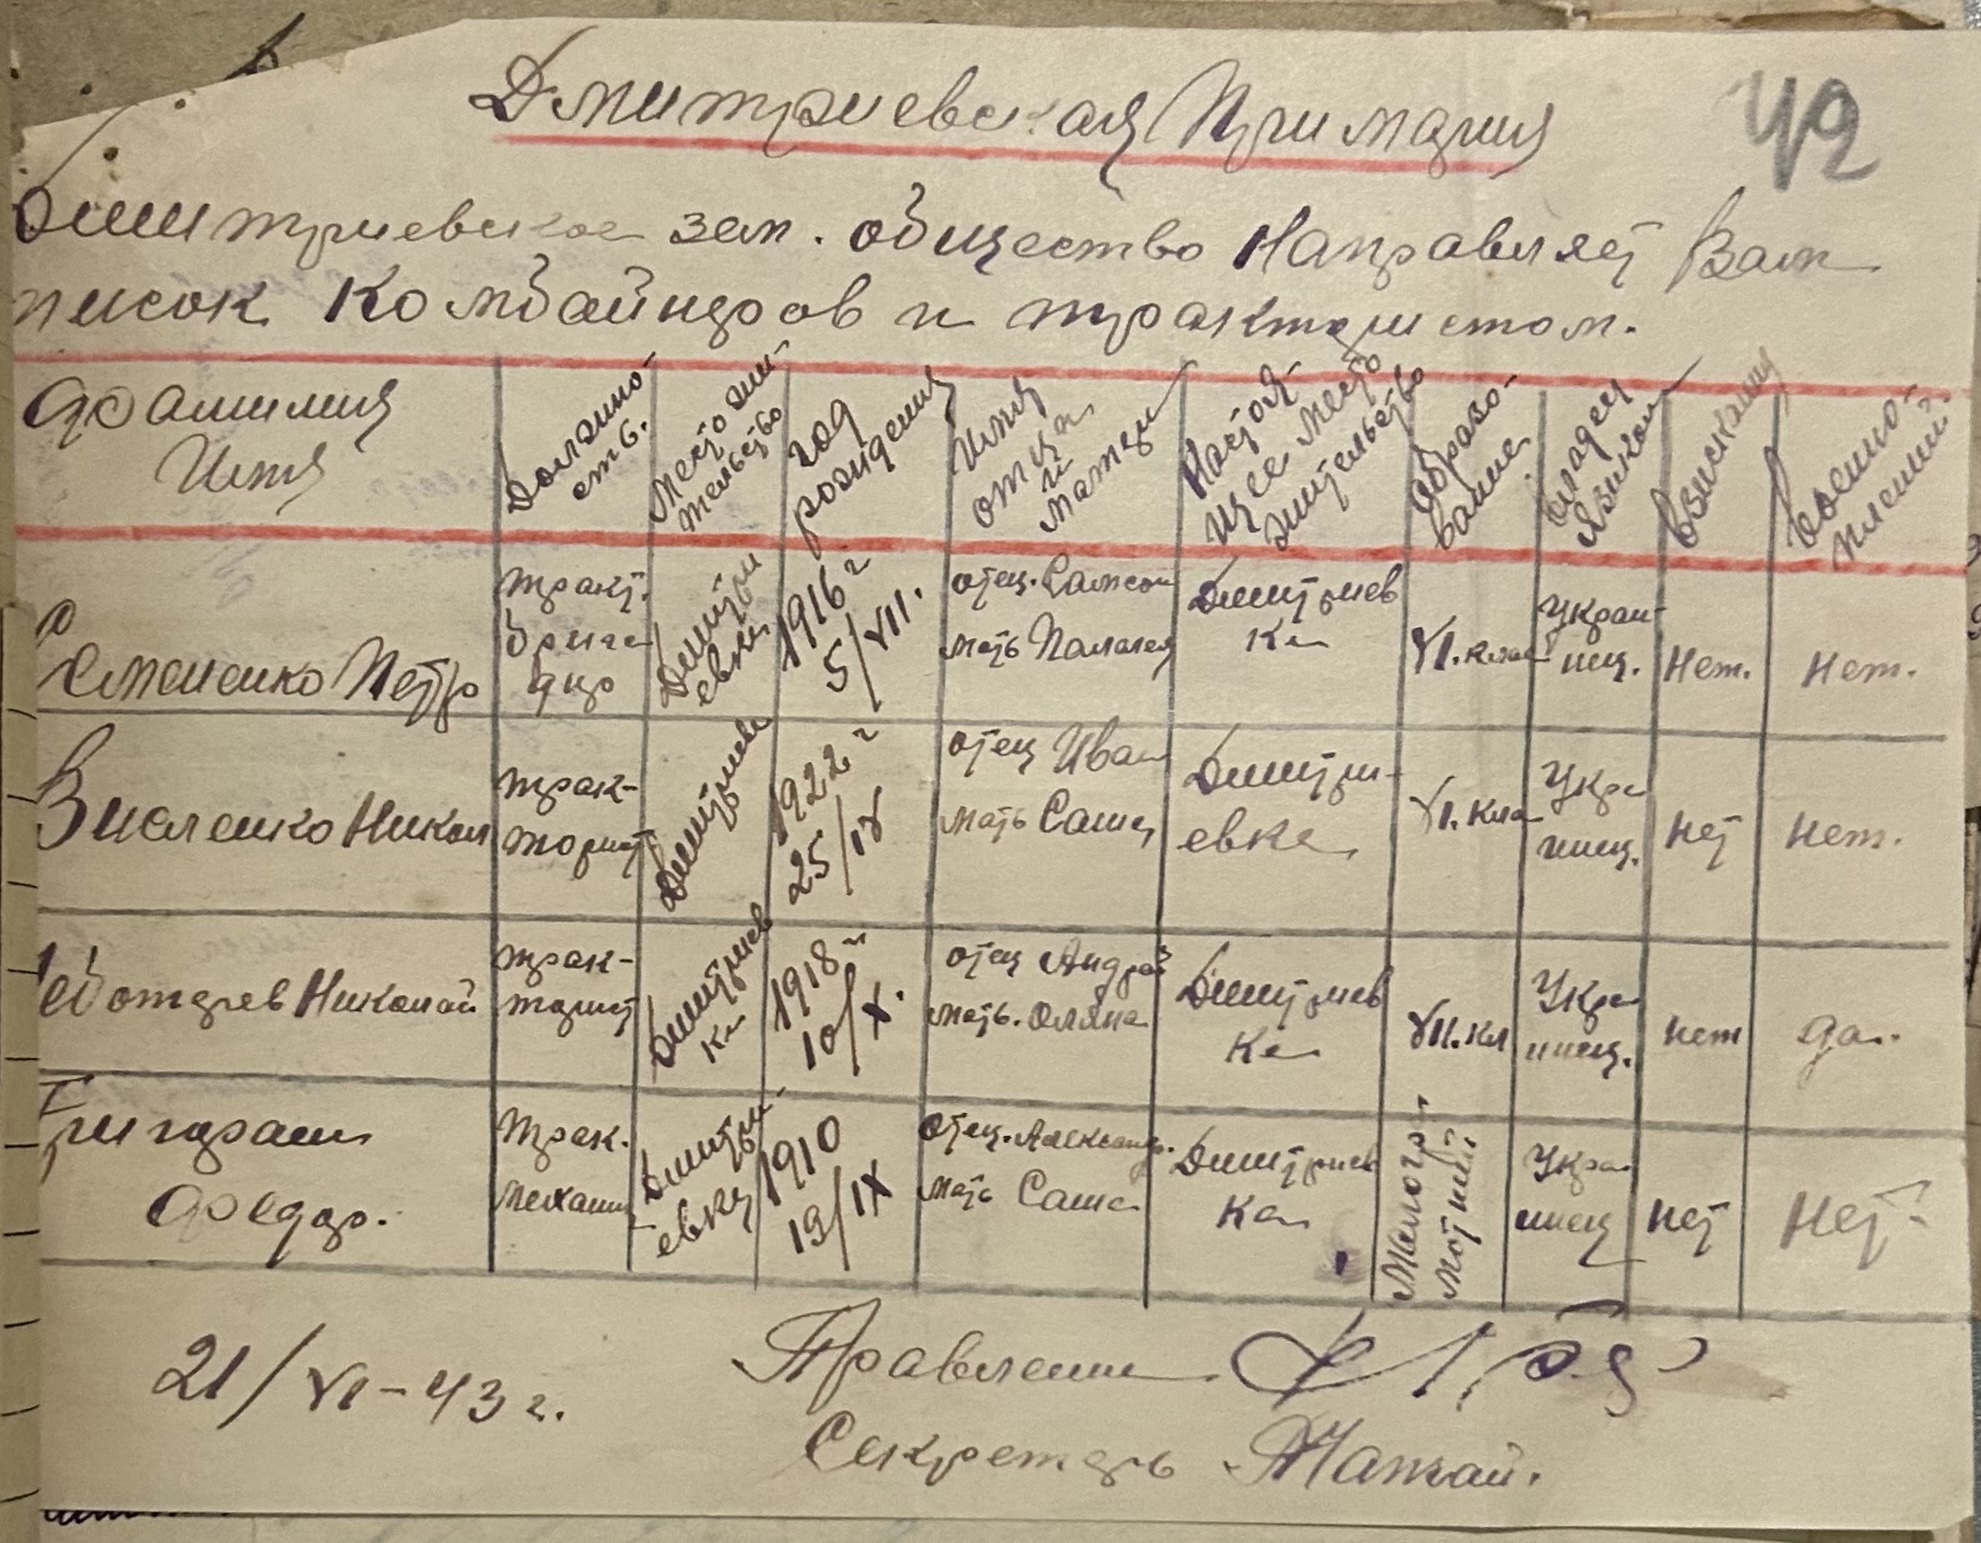 Дмитриевская Примария
42
Дмитриевское зем. общество Направляет Вам
писок Комбайнров и трактористом.
Фамилия Имя
Должно-сть.
Место жи-тельство
год рождения
Имя отца и матери
Настоя-щее место жительство
Образо-вание
владеен Язиком
взискания
военно-пленний.
Семененко Петро
тракт. брига дир
Дмитри евки
1916 г 5/VII.
отец. Самсон
мать Палагея
Дмитриев ка
VI. клас
Украи-нец.
Нет.
Нет.
Никол
трак-торист
Дмитриевк
1922 г 25/IX
отец Иван
мать Саша
Дмитри-евка
VI. кла
Укра инец.
нет
нет.
еботарев Николай
трак-торист
Дмитриев ка
1918 г 10/X.
отец Андрей
мать. Оляна
Дмитриев Ка
VII. кл
Укра инец.
нет
да.
Григораш Федор.
трак. механик
Дмитри-евка
1910 19/IX
отец. Александр.
мать Саша
Дмитриев Ка
Малогра мотний
Укра инец
нет
Нет.
21/VI-43 г.
Правления
Секретарь